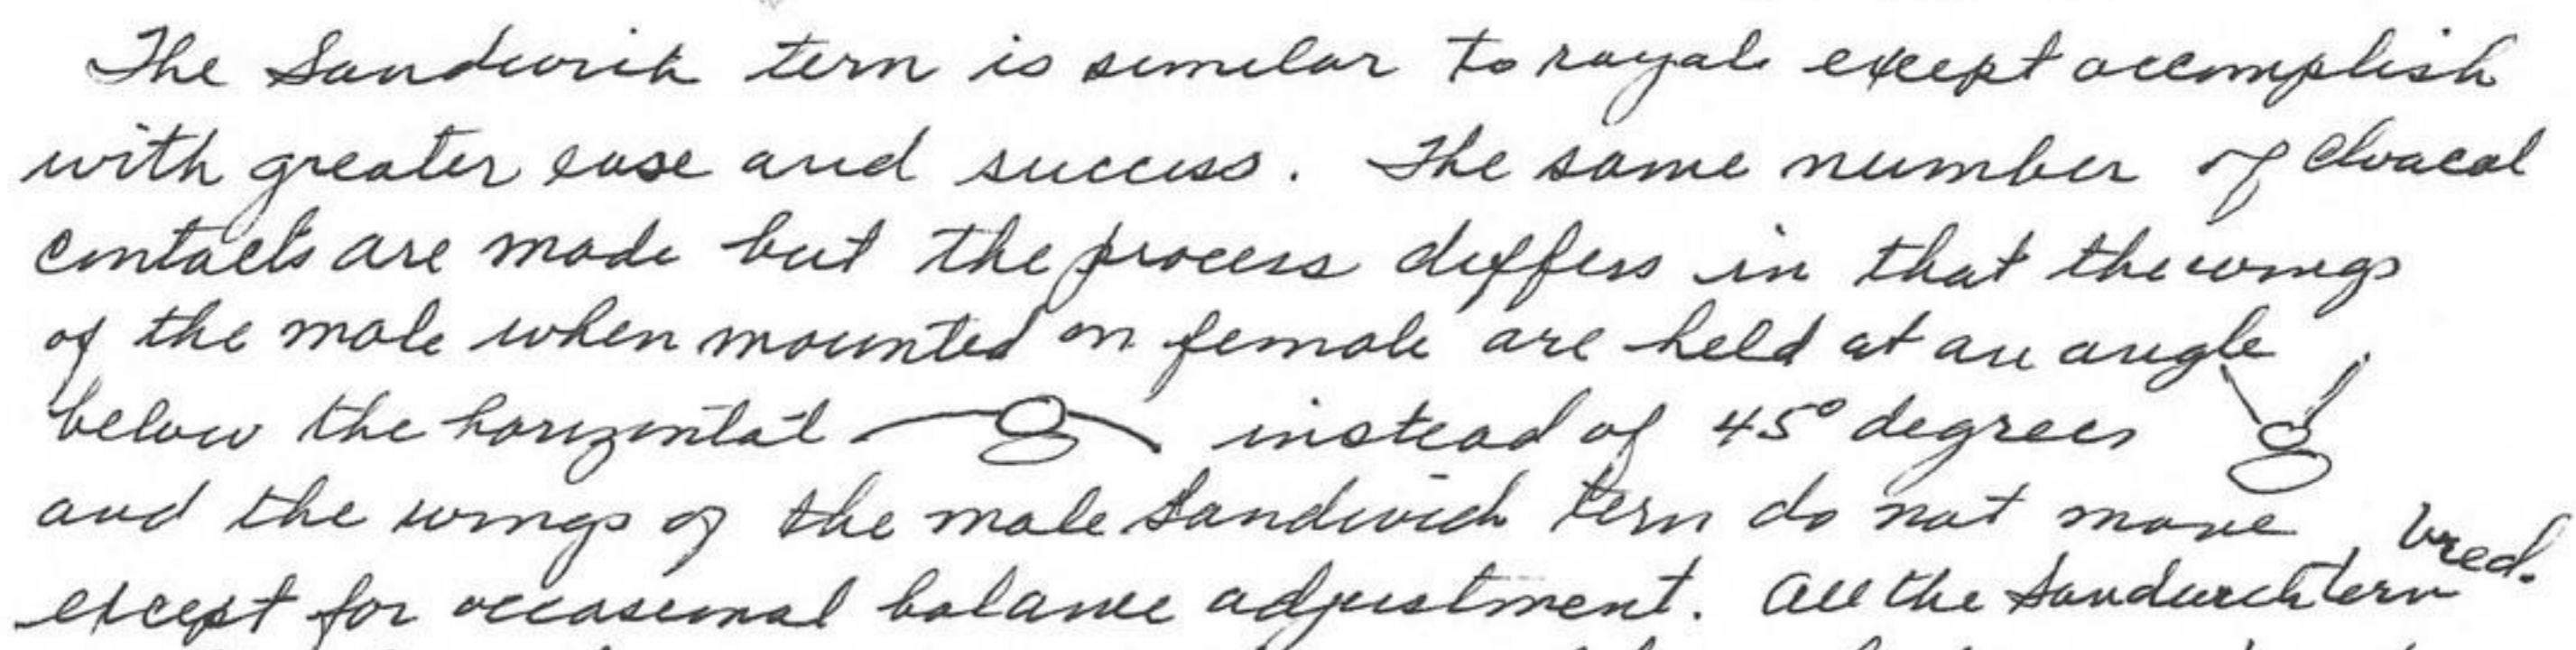 The Sandwich tern is similar to royal except accomplish
with greater ease and success. The same number of cloacal
contacts are made but the process differs in that the wings
of the male when mounted on female are held at an angle
below the horizontal instead of 45° degrees
and the wings of the male Sandwich tern do not move
except for occasional balance adjustment. All the Sandwich tern bred.